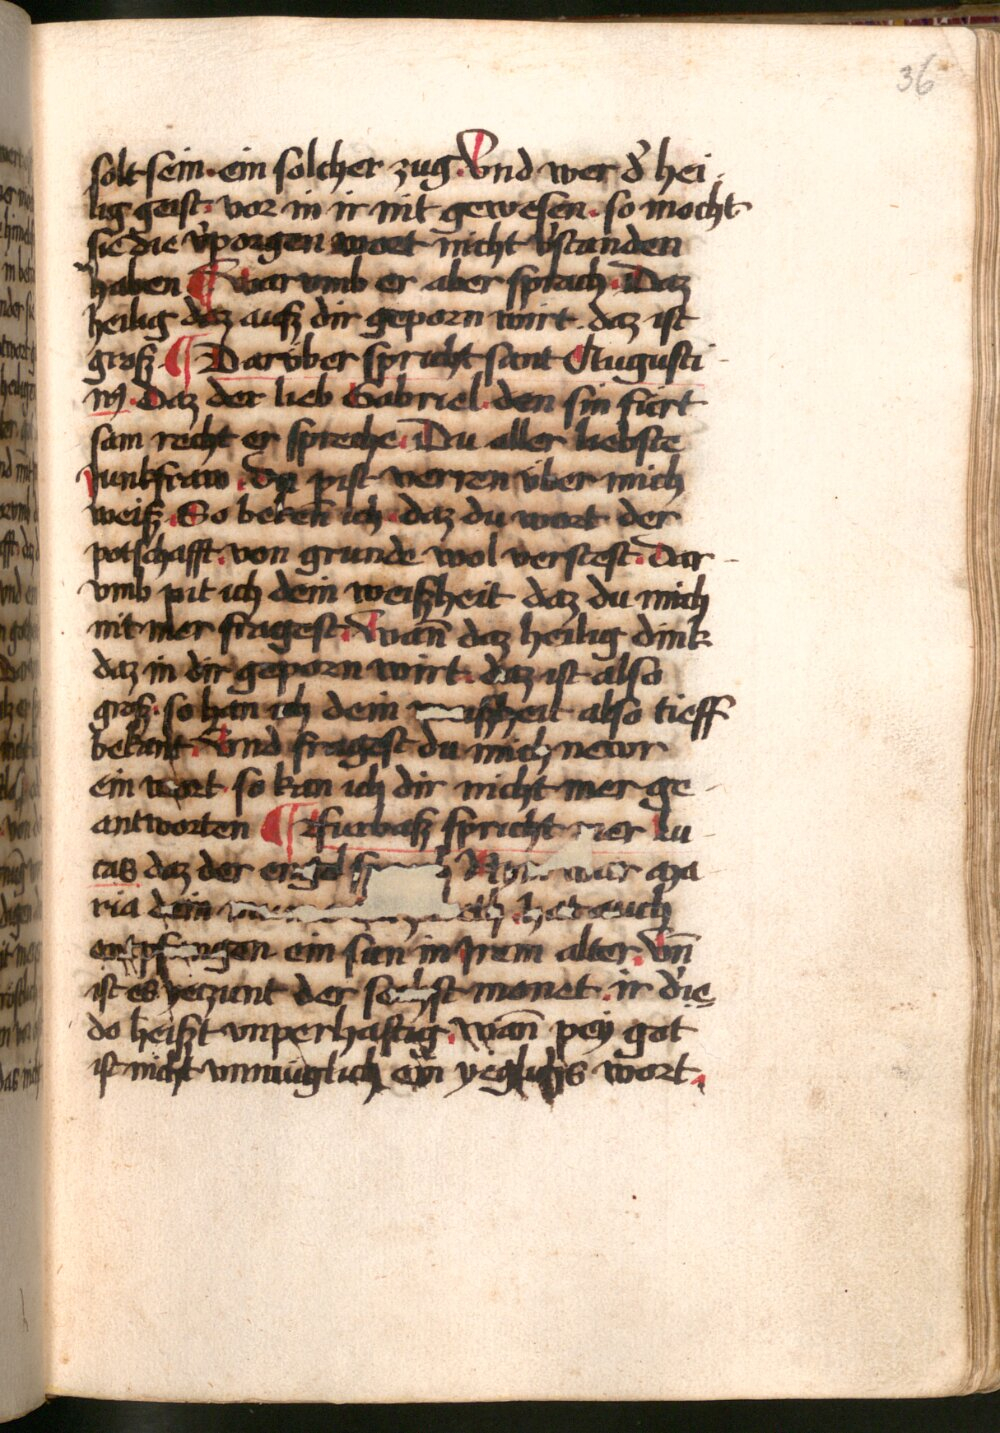 36
solt sein. ein solcher zug. Vnd wer d̾ hei-
lig geist. vor in ir nit gewesen. so mocht
sie die v̾porgen wort nicht v̾standen
haben ¶ war vmb er aber sprach. Daz
heilig daz auſz dir geporn wirt. daz ist
groſz. ¶ Darüber spricht sant Augusti-
nꝰ. Daz der lieb Gabriel. den sin fürt
sam recht er spreche. Du aller liebste
Junkfraw. du pist werren über mich
weiſz. So beken̄ ich. daz du wort der
potschafft. von grunde wol verstest. Dar-
vmb pit ich dein weiſzheit daz du mich
nit mer fragest. wan̄ daz heilig dink
daz in dir geporn wirt. daz ist also
groſz. so han ich dein weiſzheit also tieff
bekant. Vnd fragest du mich newr
ein wort. so kan ich dir nicht mer ge-
antworten ¶ furbaſz spricht Lu-
cas daz der engel Ma
ria dein hat auch
enpfangen ein sun in Jrem alter. Vn̄
ist es yeczunt der sechst monet. ir die
do heiſzt vnperhaftig. wan̄ pey got
ist nicht vnmüglich ein yeglichs wort.